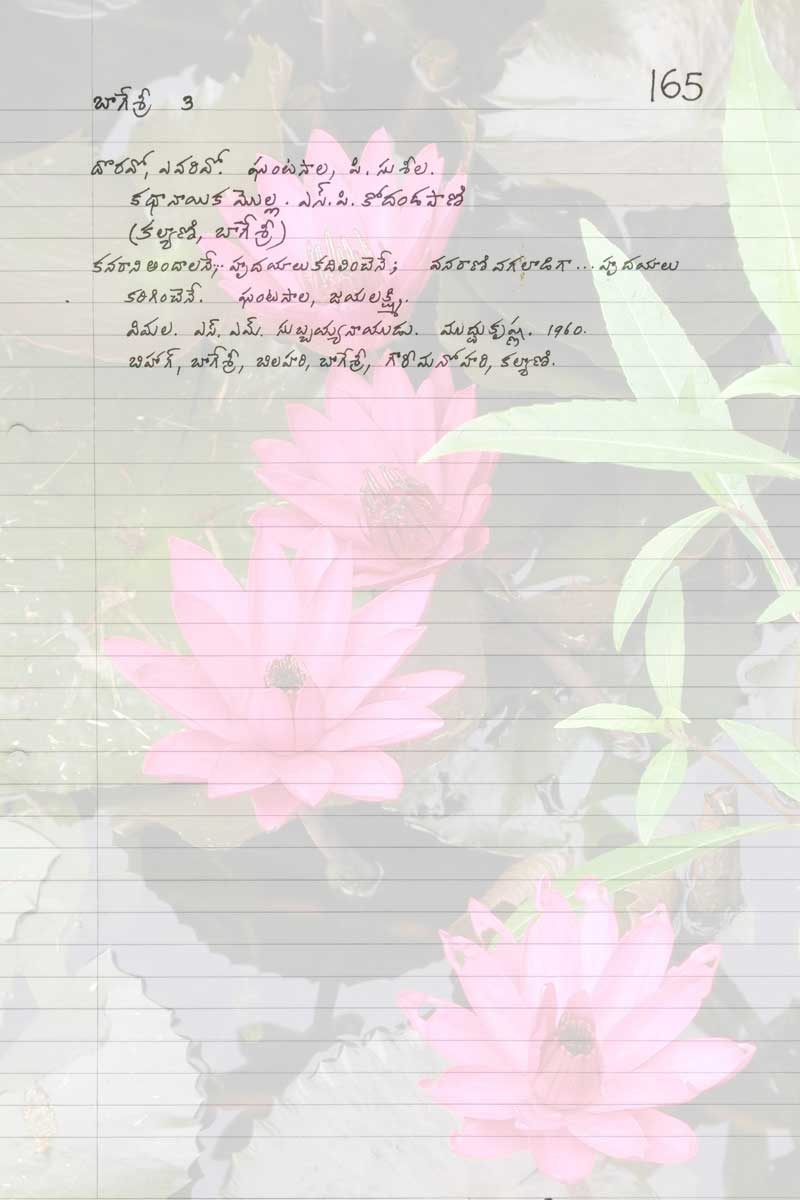 165
బాగేశ్రీ 3
దొరవో, ఎవరివో. ఘంటసాల, పి. సుశీల.
కథానాయిక మొల్ల. ఎస్.పి. కోదండపాణి
(కల్యాణి, బాగేశ్రీ)
కనరాని అందాలనే,.. హృదయాలు కదిలించెనే; వనరాణి వగలాడిగా... హృదయాలు
కరిగించెనే. ఘంటసాల, జయలక్ష్మి.
విమల. ఎస్. ఎమ్. సుబ్బయ్యనాయుడు. ముద్దుకృష్ణ. 1960.
బిహాగ్, బాగేశ్రీ, బిలహరి, బాగేశ్రీ, గౌరీమనోహరి, కల్యాణి.